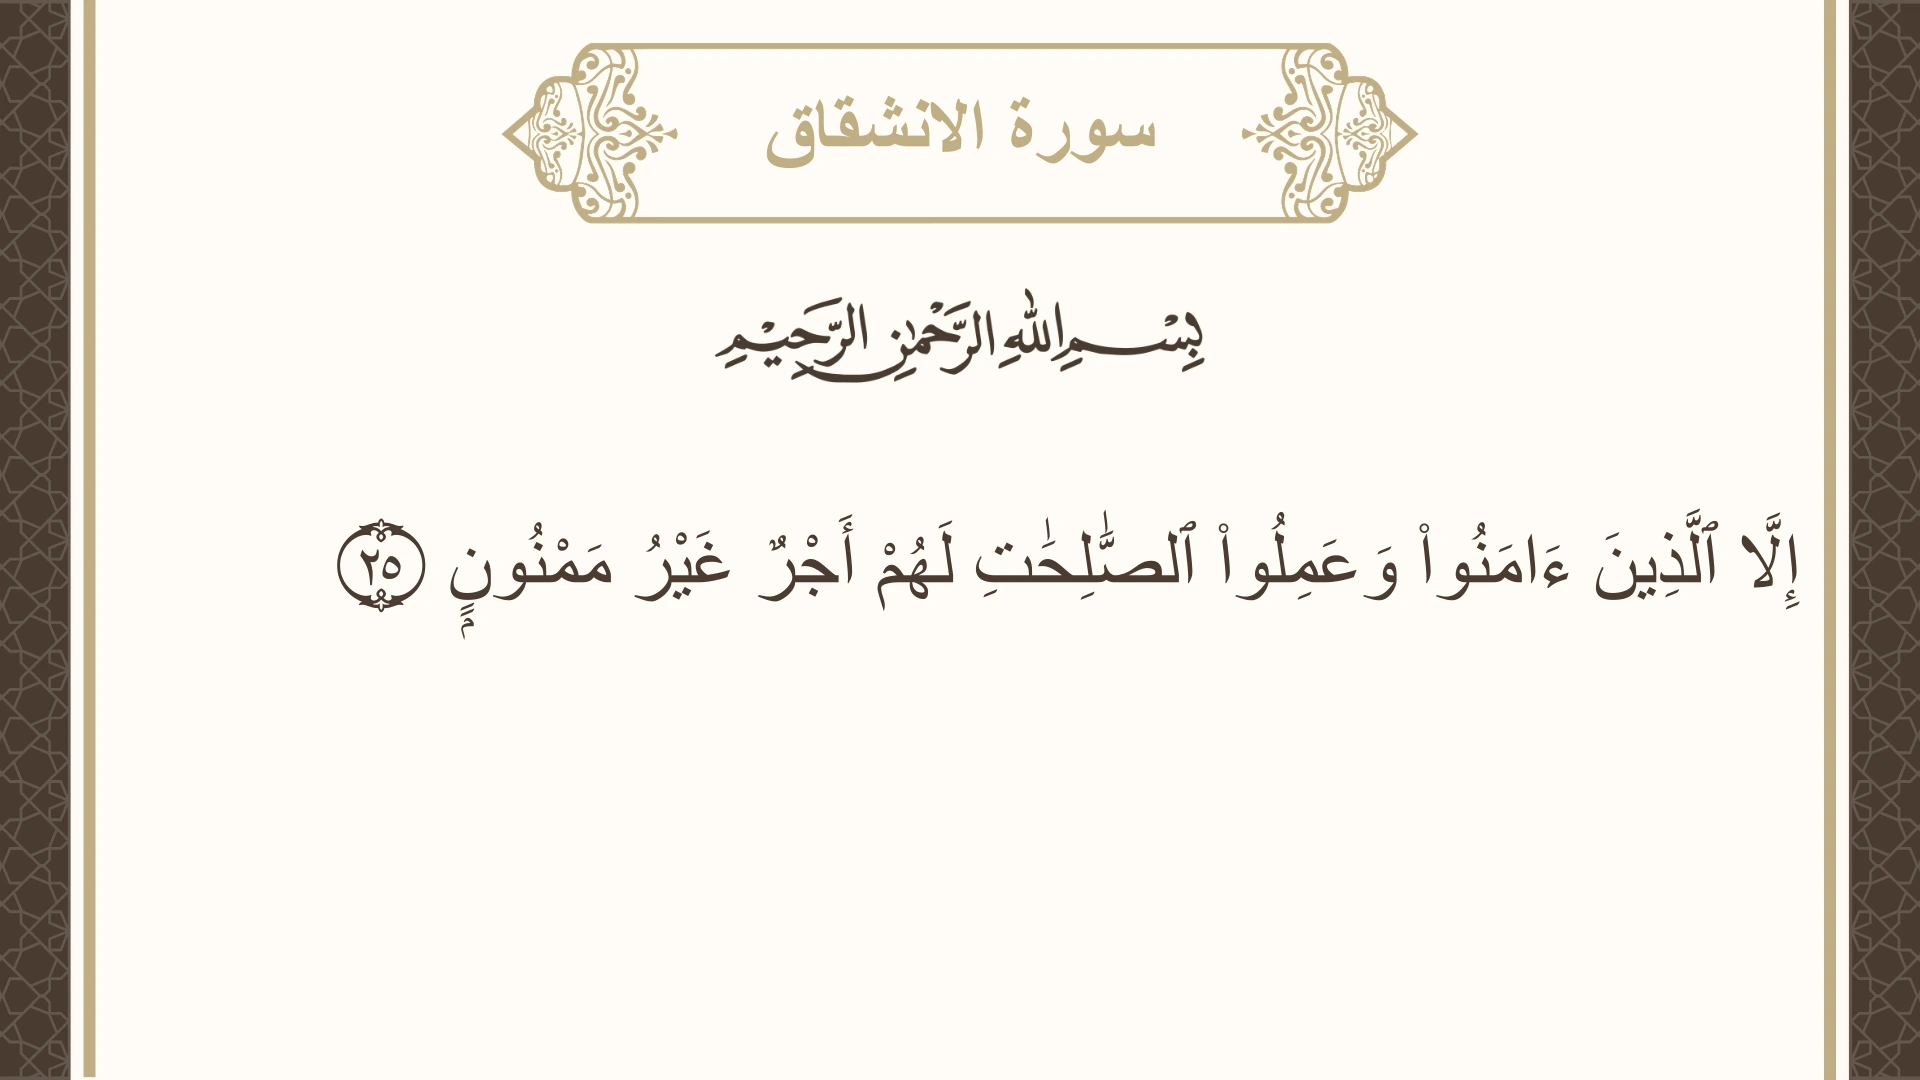 سورة الانشقاق
بِسْمِ اللهِ الرَّحْمٰنِ الرَّحِيْمِ
إِلَّا ٱلَّذِينَ ءَامَنُوا۟ وَعَمِلُوا۟ ٱلصَّٰلِحَٰتِ لَهُمْ أَجْرٌ غَيْرُ مَمْنُونٍۭ ٢٥